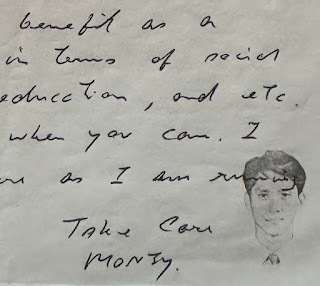 benefit as a
in terms of social
education, and etc.
when you can. I
as I am running
Take Care
MONTY.